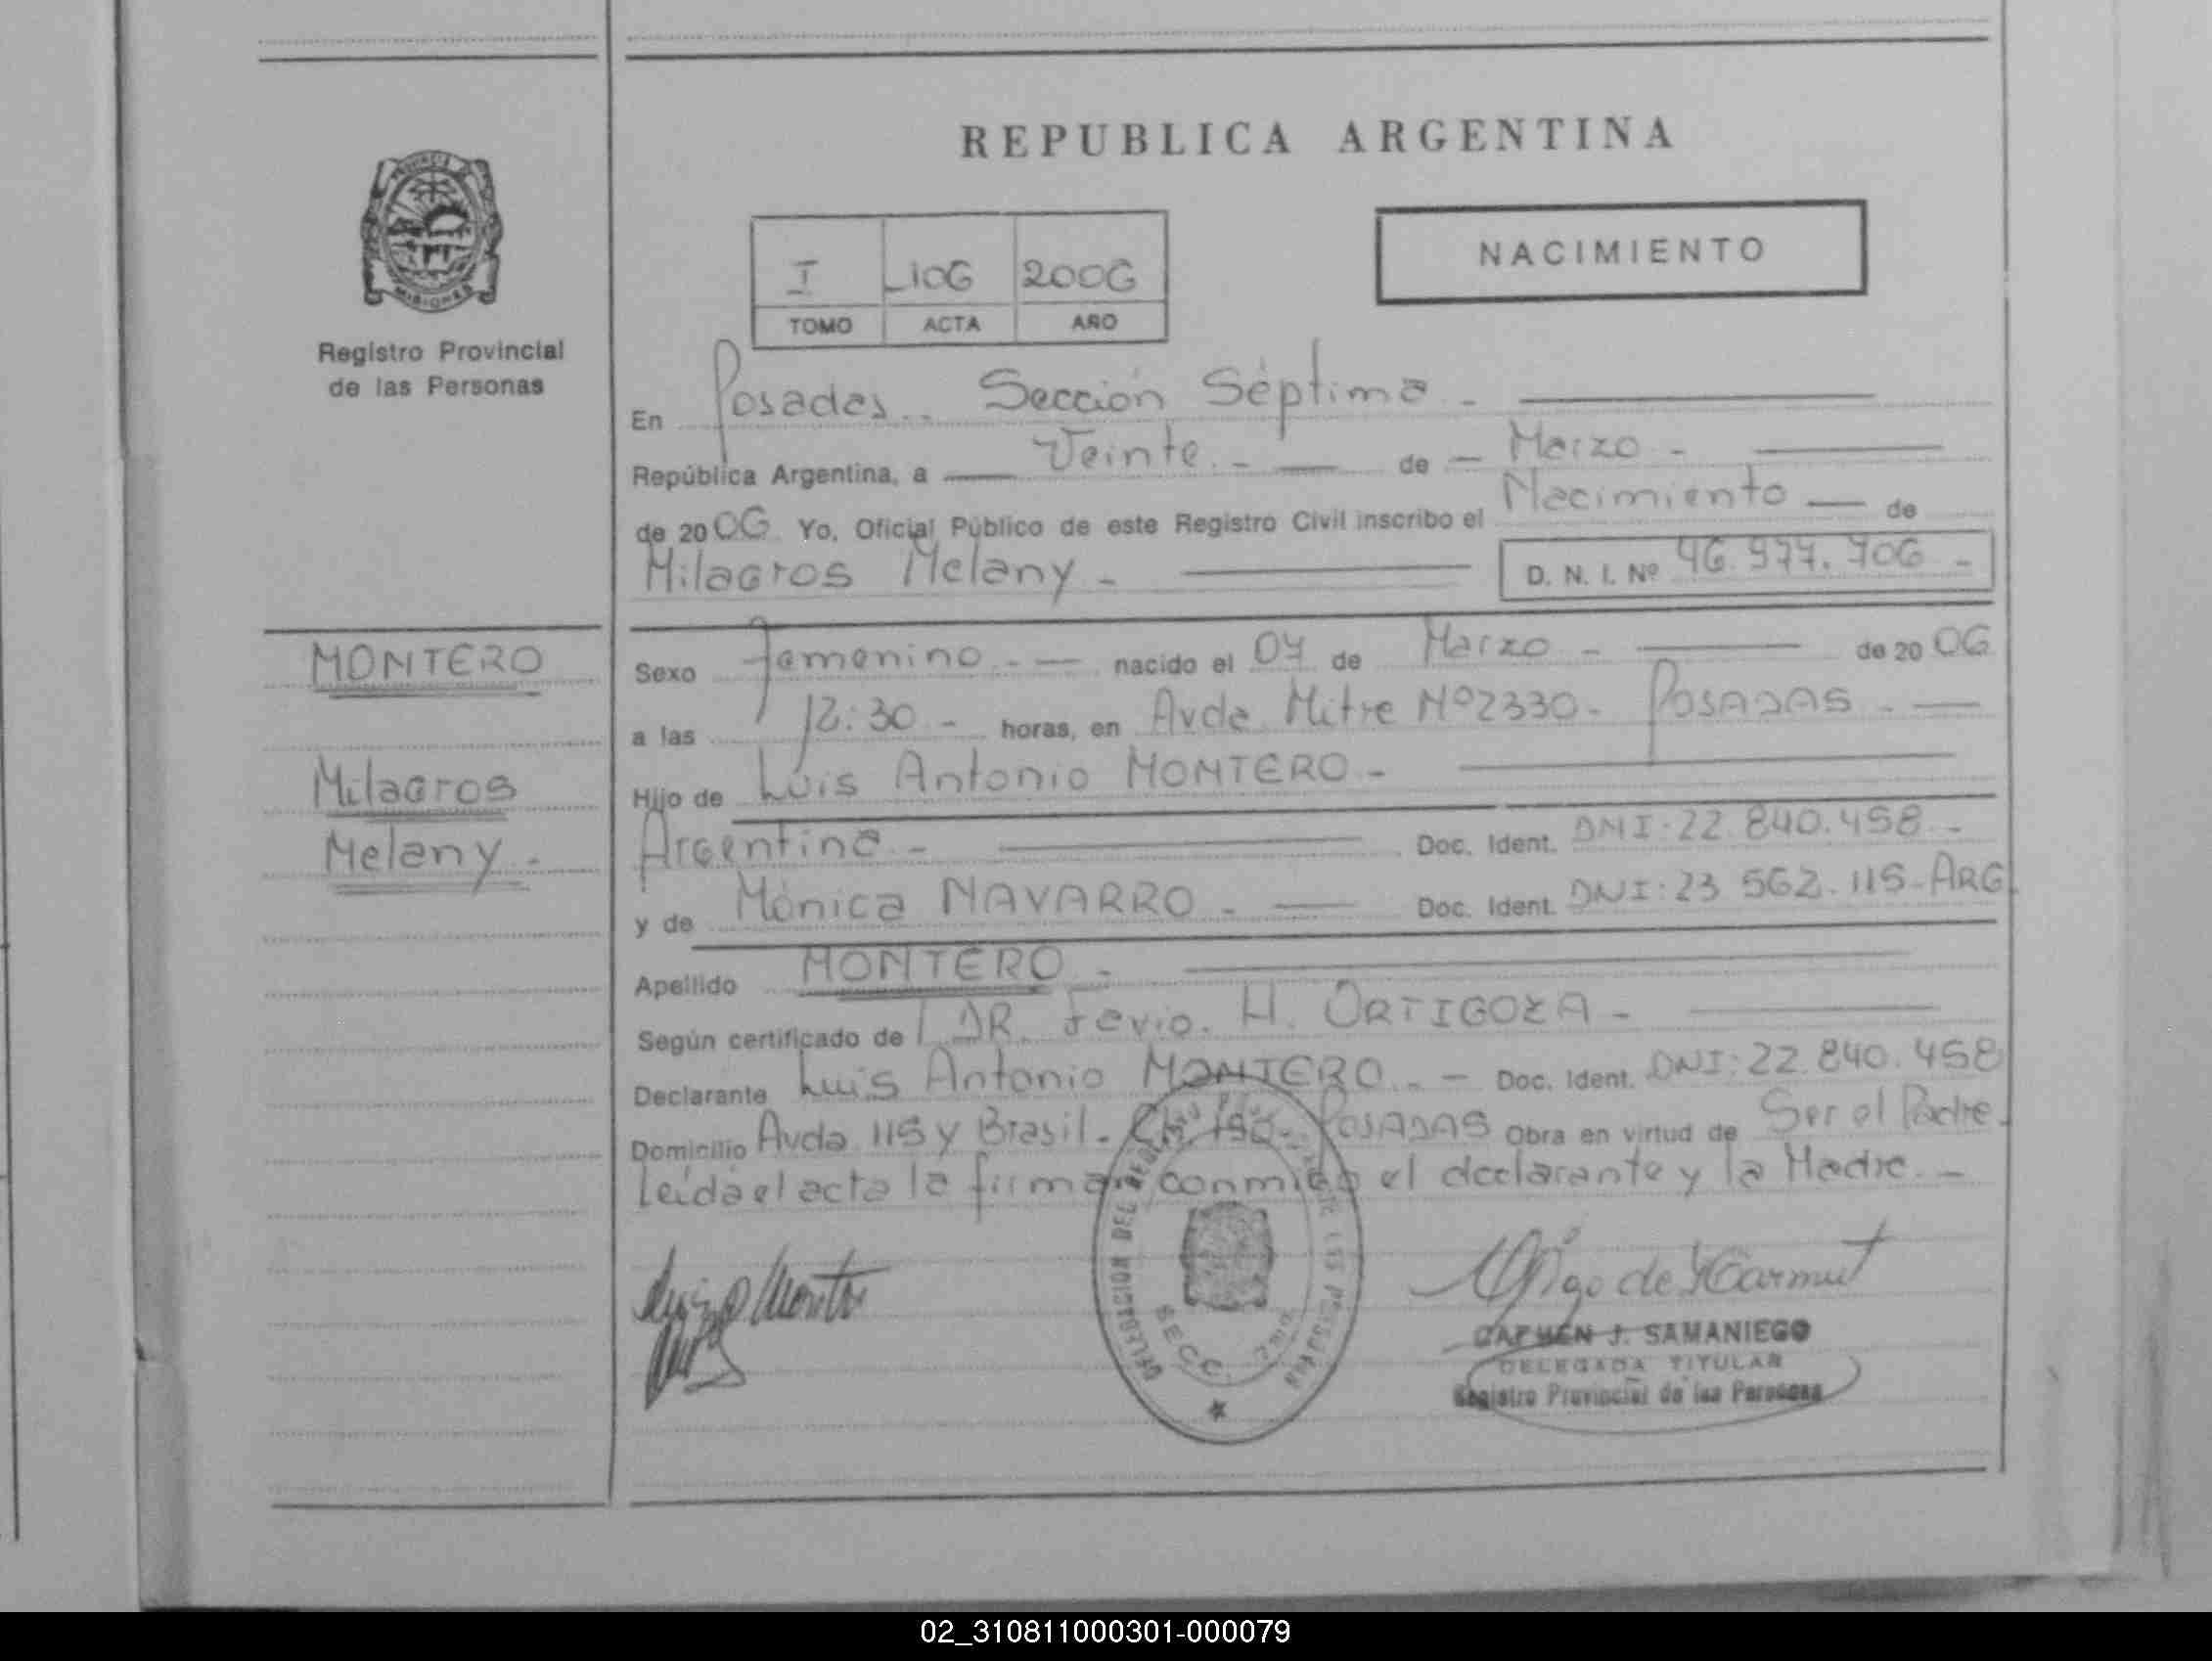 REPUBLICA ARGENTINA
NACIMIENTO
I 106 2006
TOMO ACTA AÑO
PROVINCIA DE MISIONES
Registro Provincial
de las Personas
En Posadas.. Sección Séptima -
República Argentina, a Veinte.- de Marzo -
de 2006 Yo, Oficial Público de este Registro Civil inscribo el Nacimiento de
Milagros Melany - D. N. I. Nº 46.977.706 -
MONTERO
Milagros
Melany -
Sexo Femenino.- nacido el 07 de Marzo - de 2006
a las 12:30 - horas, en Avda Mitre Nº2330- POSADAS -
Hijo de Luis Antonio MONTERO.-
Argentina - Doc. Ident. DNI: 22.840.458 -
y de Mónica NAVARRO - Doc. Ident. DNI: 23 562.115-ARG
Apellido MONTERO -
Según certificado de DR. Favio. H. ORTIGOZA -
Declarante Luis Antonio MONTERO.- Doc. Ident. DNI: 22.840.458
Domicilio Avda 115 y Brasil. Ch 190- POSADAS Obra en virtud de Ser el Padre.
Leída el acta la firman conmigo el declarante y la Madre.-
DELEGACION DEL REGISTRO DE LAS PERSONAS
SECC.
CARMEN J. SAMANIEGO
DELEGADA TITULAR
Registro Provincial de las Personas
02_310811000301-000079